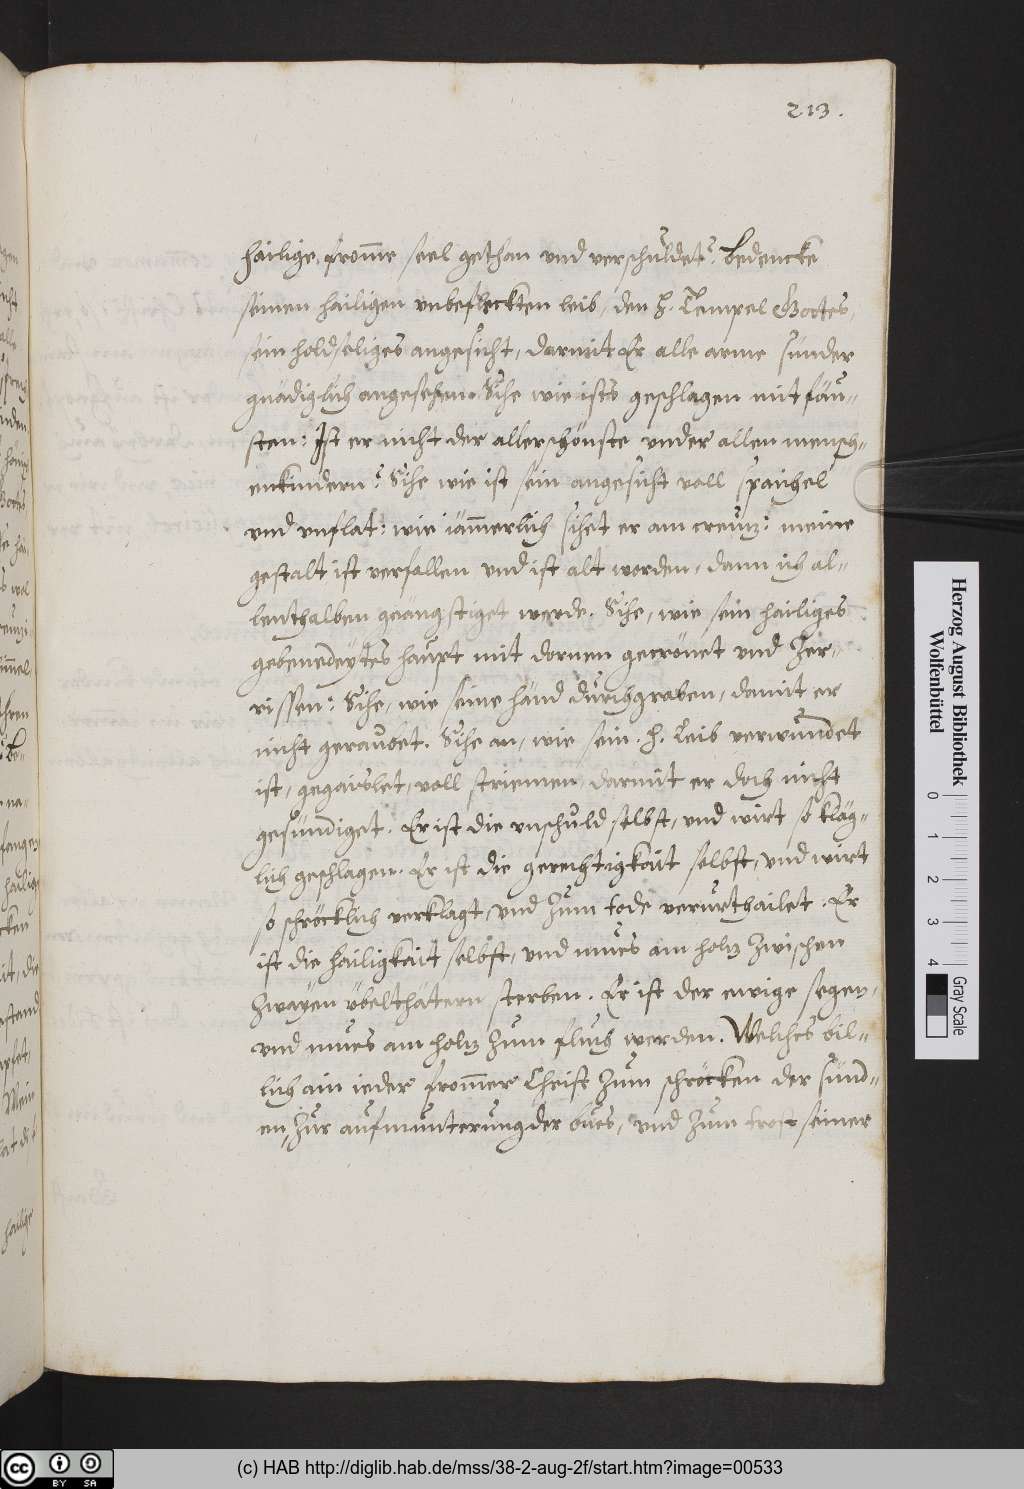 213.
hailige, from̄e seel gethan und verschuldet? bedencke
seinen hailigen unbefleckten leib, den h. Tempel Gottes,
sein holdseliges angesicht, darmit Er alle arme sünder
gnädiglich angesehen. Sihe wie ists geschlagen mit fäu-
sten: Ist er nicht der allerschönste under allen mensch-
enkindern? Sihe wie ist sein angesicht voll spaichel
und unflat: wie iäm̄erlich sihet er am creutz: meine
gestalt ist verfallen und ist alt worden, dann ich al-
lenthalben geängstiget werde. Sihe, wie sein hailiges
gebenedeytes haupt mit dornen gecrönet und Zer-
rissen: Sihe, wie seine händ durchgraben, damit er
nicht geraubet. Sihe an, wie sein h. Leib verwundet
ist, gegaislet, voll striemen, darmit er doch nicht
gesündiget. Er ist die unschuld selbst, und wirt so kläg-
lich geschlagen. Er ist die gerechtigkait selbst, und wirt
so schröcklich verklagt, und Zum tode verurthailet. Er
ist die hailigkait selbst, und mues am holtz Zwischen
Zwayen übelthätern sterben. Er ist der ewige segen,
und mues am holtz Zum fluch werden. Welches bil-
lich ain ieder from̄er Christ Zum schröcken der sünd-
en, Zur aufmunterung der bues, und Zum trost seiner
hailige
Herzog August Bibliothek
Wolfenbüttel
0 1 2 3 4
Gray Scale
cc BY SA
(c) HAB http://diglib.hab.de/mss/38-2-aug-2f/start.htm?image=00533